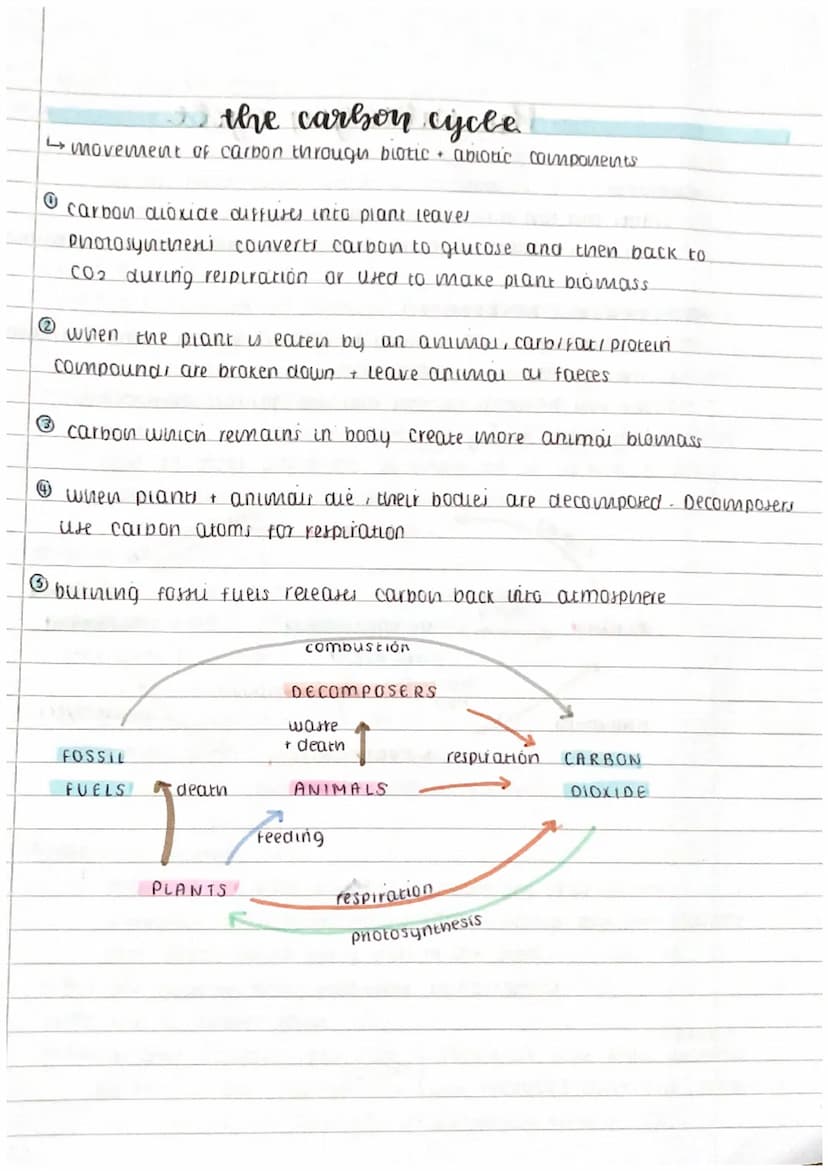 the carbon cycle
↳ movement of carbon through biotic + abiotic components
① carbon dioxide diffuses into plant leaves
Photosynthesis converts carbon to glucose and then back to
CO₂ during respiration or used to make plant biomass
② when the plant is eaten by an animal, carb/fat/protein
compounds are broken down + leave animal as faeces
③ carbon which remains in body create more animal biomass
④ when plants + animals die, their bodies are decomposed. Decomposers
use carbon atoms for respiration
⑤ burning fossil fuels releases carbon back into atmosphere
combustion
DECOMPOSERS
waste
+ death
FOSSIL
FUELS
death
ANIMALS
respiration
CARBON
DIOXIDE
feeding
PLANTS
respiration
photosynthesis